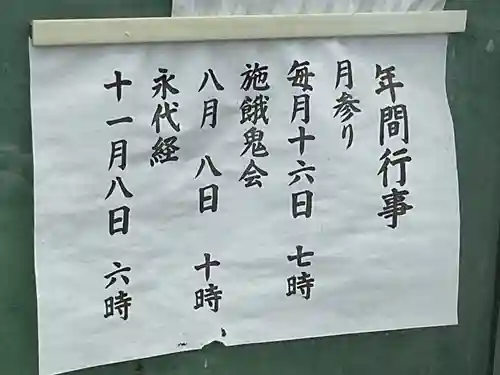 年間行事
月参り
毎月十六日 七時
施餓鬼会
八月 八日 十時
永代経
十一月八日 六時